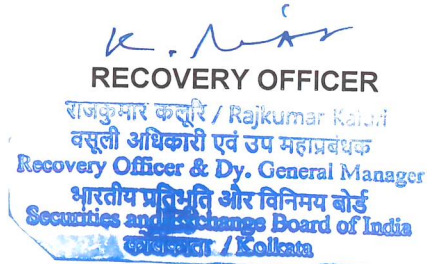 RECOVERY OFFICER
राजकुमार कलूरि / Rajkumar
वसूली अधिकारी एवं उप महाप्रबंधक
Recovery Officer & Dy. General Manager
भारतीय प्रतिभूति और विनिमय बोर्ड
Securities and Exchange Board of India
कोलकाता / Kolkata